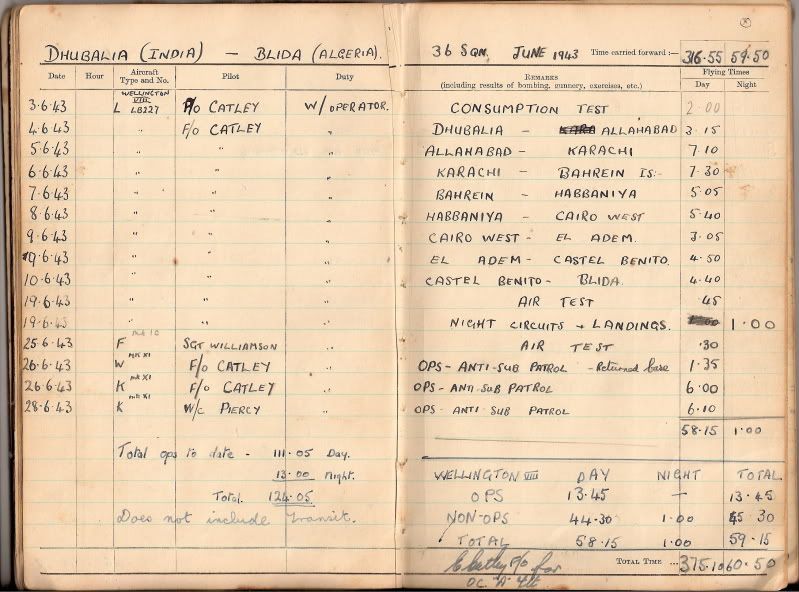 DHUBALIA (INDIA) — BLIDA (ALGERIA).
Date Hour Aircraft Type and No. Pilot Duty
3·6·43 WELLINGTON VIII L LB227 P/O CATLEY W/OPERATOR.
4·6·43 " F/O CATLEY "
5·6·43 " " "
6·6·43 " " "
7·6·43 " " "
8·6·43 " " "
9·6·43 " " "
9·6·43 " " "
10·6·43 " " "
19·6·43 " " "
19·6·43 " " "
25·6·43 F SGT WILLIAMSON "
26·6·43 MK XI W F/O CATLEY "
26·6·43 MK XI K F/O CATLEY "
28·6·43 MK XI K W/C PIERCY "
Total ops to date - 111·05 Day.
13·00 Night.
Total. 124·05
Does not include transit.
36 SQN. JUNE 1943 Time carried forward :— 316·55 59·50
REMARKS Flying Times
(including results of bombing, gunnery, exercises, etc.) Day Night
CONSUMPTION TEST 2·00
DHUBALIA — ALLAHABAD 3·15
ALLAHABAD — KARACHI 7·10
KARACHI — BAHREIN IS:- 7·30
BAHREIN — HABBANIYA 5·05
HABBANIYA — CAIRO WEST 5·40
CAIRO WEST - EL ADEM. 3·05
EL ADEM — CASTEL BENITO. 4·50
CASTEL BENITO - BLIDA. 4·40
AIR TEST ·45
NIGHT CIRCUITS + LANDINGS. 1·00
AIR TEST ·30
OPS - ANTI-SUB PATROL - Returned base 1·35
OPS - ANTI-SUB PATROL 6·00
OPS - ANTI SUB PATROL 6·10
58·15 1·00
WELLINGTON VIII DAY NIGHT TOTAL
OPS 13·45 — 13·45
NON-OPS 44·30 1·00 45·30
TOTAL 58·15 1·00 59·15
F/O for
O.C. "A" Flt
TOTAL TIME ... 375·10 60·50